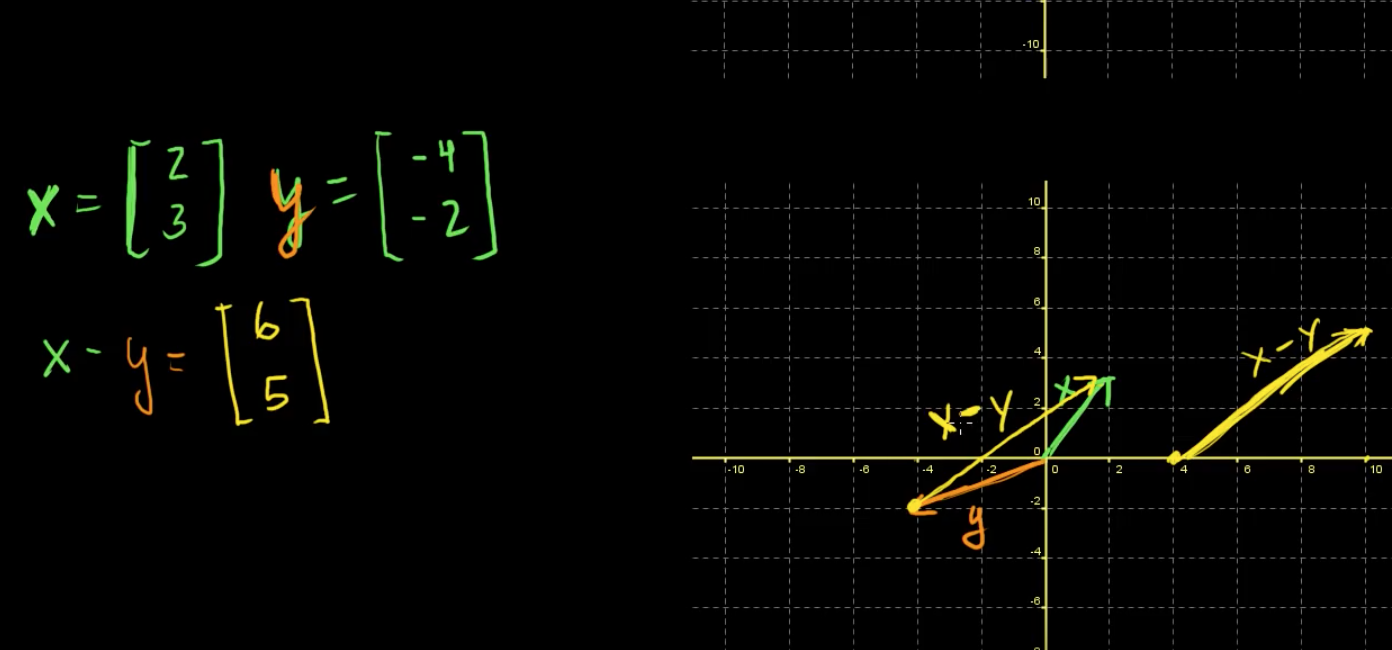 x = [2 3] y = [-4 -2]
x - y = [6 5]
-10
10
8
6
4
2
0
-10 -8 -6 -4 -2 0 2 4 6 8 10
-2
-4
-6
-8
x - y
x
y
x - y